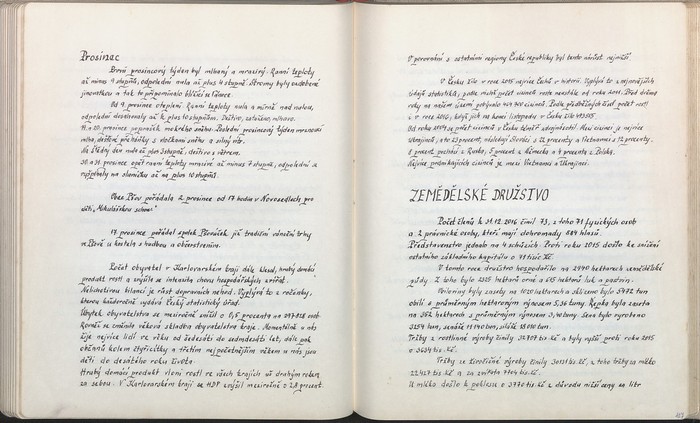 Prosinac
První prosincový týden byl mlhavý a mrazivý. Ranní teploty
až minus 9 stupňů, odpolední nula až plus 4 stupně. Stromy byly ozdobené
jinovatkou a tak to připomínalo blížící se Vánoce.
Od 9. prosince oteplení. Ranní teploty nula a mírně nad nulou,
odpolední dosahovaly až k plus 10 stupňům. Deštivo, zataženo, mlhavo.
19. a 20. prosince poprašek mokrého sněhu. Poslední prosincový týden mrazení
mlha, deštění přeháňky s vločkami sněhu a silný vítr.
Na Štědrý den nula až plus 3 stupně, deštivo s větrem.
30. a 31. prosince opět ranní teploty mrazivé až minus 7 stupňů, odpoledne se
vyšplhaly na sluníčku až na plus 10 stupňů.
Obec Pšov pořádala 2. prosince od 17 hodin v Novosedlech pro
děti „Mikulášskou schow“
17. prosince pořádal spolek Pšováček již tradiční vánoční trhy
ve Pšově u kostela s hudbou a občerstvením.
Počet obyvatel v Karlovarském kraji dále klesal, hrubý domácí
produkt rostl a snížila se intenzita chovu hospodářských zvířat.
Nelichotivou bilancí je růst dopravních nehod. Vyplývá to z ročenky,
kterou každoročně vydává Český statistický úřad.
Úbytek obyvatelstva se meziročně snížil o 0,5 procenta na 297 828 osob.
Rovněž se změnila věková skladba obyvatelstva kraje. Momentálně u nás
žije nejvíce lidí ve věku od šedesáti do sedmdesáti let, dále pak
občanů kolem čtyřicítky a třetím nejpočetnějším věkem u nás jsou
děti do desátého roku života.
Hrubý domácí produkt vloni rostl ve všech krajích už druhým rokem
za sebou. V Karlovarském kraji se HDP zvýšil meziročně o 2,8 procent
V porovnání s ostatními regiony České republiky byl tento nárůst nejnižší.
V Česku žilo v roce 2015 nejvíce Čechů v historii. Vyplývá to z nejnovějších
údajů statistiků, podle nichž počet cizinců roste neustále od roku 2011. Před dvěma
roky na našem území pobývalo 464 700 cizinců. Podle předběžných čísel počet rostl
i v roce 2016, kdy jich na konci listopadu v Česku žilo 493 505.
Od roku 2014 se počet cizinců v Česku téměř zdvojnásobil. Mezi cizinci je nejvíce
Ukrajinců, a to 23 procent, následují Slováci s 22 procenty a Vietnamci s 12 procenty.
8 procent pochází z Ruska, 5 procent z Německa a 4 procenta z Polska.
Nejvíce podnikajících cizinců je mezi Vietnamci a Ukrajinci.
ZEMĚDĚLSKÉ DRUŽSTVO
Počet členů k 31.12. 2016 činil 73, z toho 71 fyzických osob
a 2 právnické osoby, které mají dohromady 884 hlasů.
Představenstvo jednalo na 4 schůzích. Proti roku 2015 došlo ke snížení
ostatního základního kapitálu o 71 tisíc Kč.
V tomto roce družstvo hospodařilo na 2940 hektarech zemědělské
půdy. Z toho bylo 2325 hektarů orné a 615 hektarů luk a pastvin.
Obiloviny byly zasety na 1020 hektarech a sklizeno bylo 5472 tun
obilí s průměrným hektarovým výnosem 5,36 tuny. Řepka byla zaseta
na 362 hektarech s průměrným výnosem 3,40 tuny. Sena bylo vyrobeno
3254 tun, senáže 11 940 tun, siláže 18 010 tun.
Tržby z rostlinné výroby činily 32 787 tis. Kč a byly vyšší proti roku 2015
o 3634 tis. Kč.
Tržby ze živočišné výroby činily 30 131 tis. Kč, z toho tržby za mléko
22 427 tis. Kč a za zvířata 7704 tis. Kč.
U mléka došlo k poklesu o 3770 tis. Kč z důvodu nižší ceny za litr